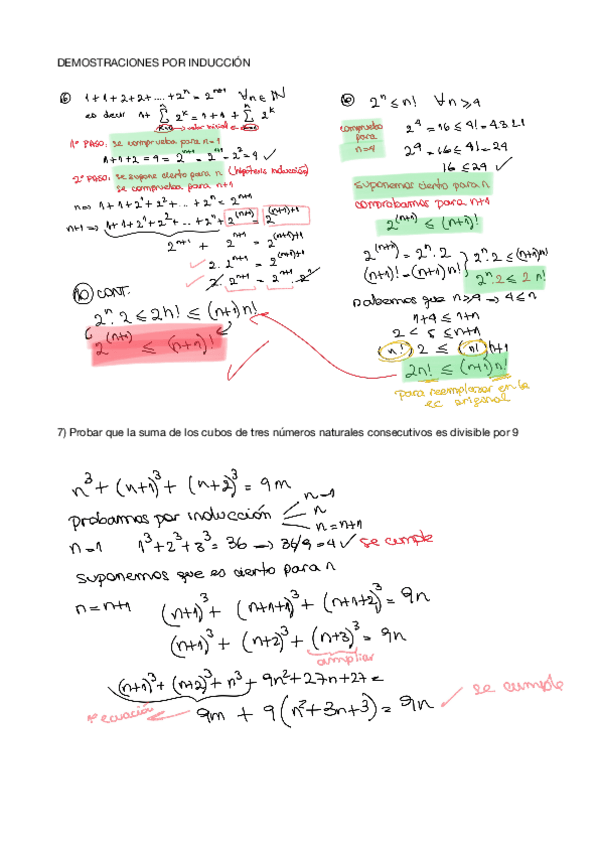 DEMOSTRACIONES POR INDUCCIÓN
⑥ 1+1+2+2+....+2ⁿ = 2ⁿ⁺¹ ∀n∈ℕ
es decir 1+ Σ 2ᵏ = 1+1+ Σ 2ᵏ
1º PASO: se comprueba para n=1
1+1+2 = 4 = 2ⁿ⁺¹ = 2² = 4 ✓
2º PASO: se supone cierto para n (hipótesis inducción)
se comprueba para n+1
n ⇒ 1+1+2¹+2²+...+2ⁿ = 2ⁿ⁺¹
n+1 ⇒ 1+1+2¹+2²+...+2ⁿ+2⁽ⁿ⁺¹⁾ = 2⁽ⁿ⁺¹⁾⁺¹
2ⁿ⁺¹ + 2ⁿ⁺¹ = 2⁽ⁿ⁺¹⁾⁺¹
✓ 2·2ⁿ⁺¹ = 2⁽ⁿ⁺¹⁾⁺¹
✓
⑩ CONT.
2ⁿ·2 ≤ 2n! ≤ (n+1)n!
2⁽ⁿ⁺¹⁾ ≤ (n+1)!
✓
⑩ 2ⁿ ≤ n! ∀n≥4
comprueba para n=4
2⁴ = 16 ≤ 4! = 4·3·2·1
2⁴ = 16 ≤ 4! = 24
16 ≤ 24 ✓
suponemos cierto para n
comprobamos para n+1
2⁽ⁿ⁺¹⁾ ≤ (n+1)!
2⁽ⁿ⁺¹⁾ = 2ⁿ·2 } 2ⁿ·2 ≤ (n+1)n!
(n+1)! = (n+1)n! } 2ⁿ·2 ≤ 2n!
Sabemos que n≥4 → 4≤n
1+4 ≤ 1+n
2 < 5 ≤ n+1
n! 2 ≤ n! n+1
2n! ≤ (n+1)n!
para reemplazar en la
ec original
7) Probar que la suma de los cubos de tres números naturales consecutivos es divisible por 9
n³ + (n+1)³ + (n+2)³ = 9m
probamos por inducción
n=1
n
n=n+1
n=1 1³+2³+3³ = 36 → 36/9 = 4 ✓ se cumple
suponemos que es cierto para n
n=n+1 (n+1)³ + (n+1+1)³ + (n+1+2)³ = 9n
(n+1)³ + (n+2)³ + (n+3)³ = 9n
ampliar
(n+1)³ + (n+2)³ + n³ + 9n² + 27n + 27 =
ecuación 9m + 9(n²+3n+3) = 9n ✓ se cumple